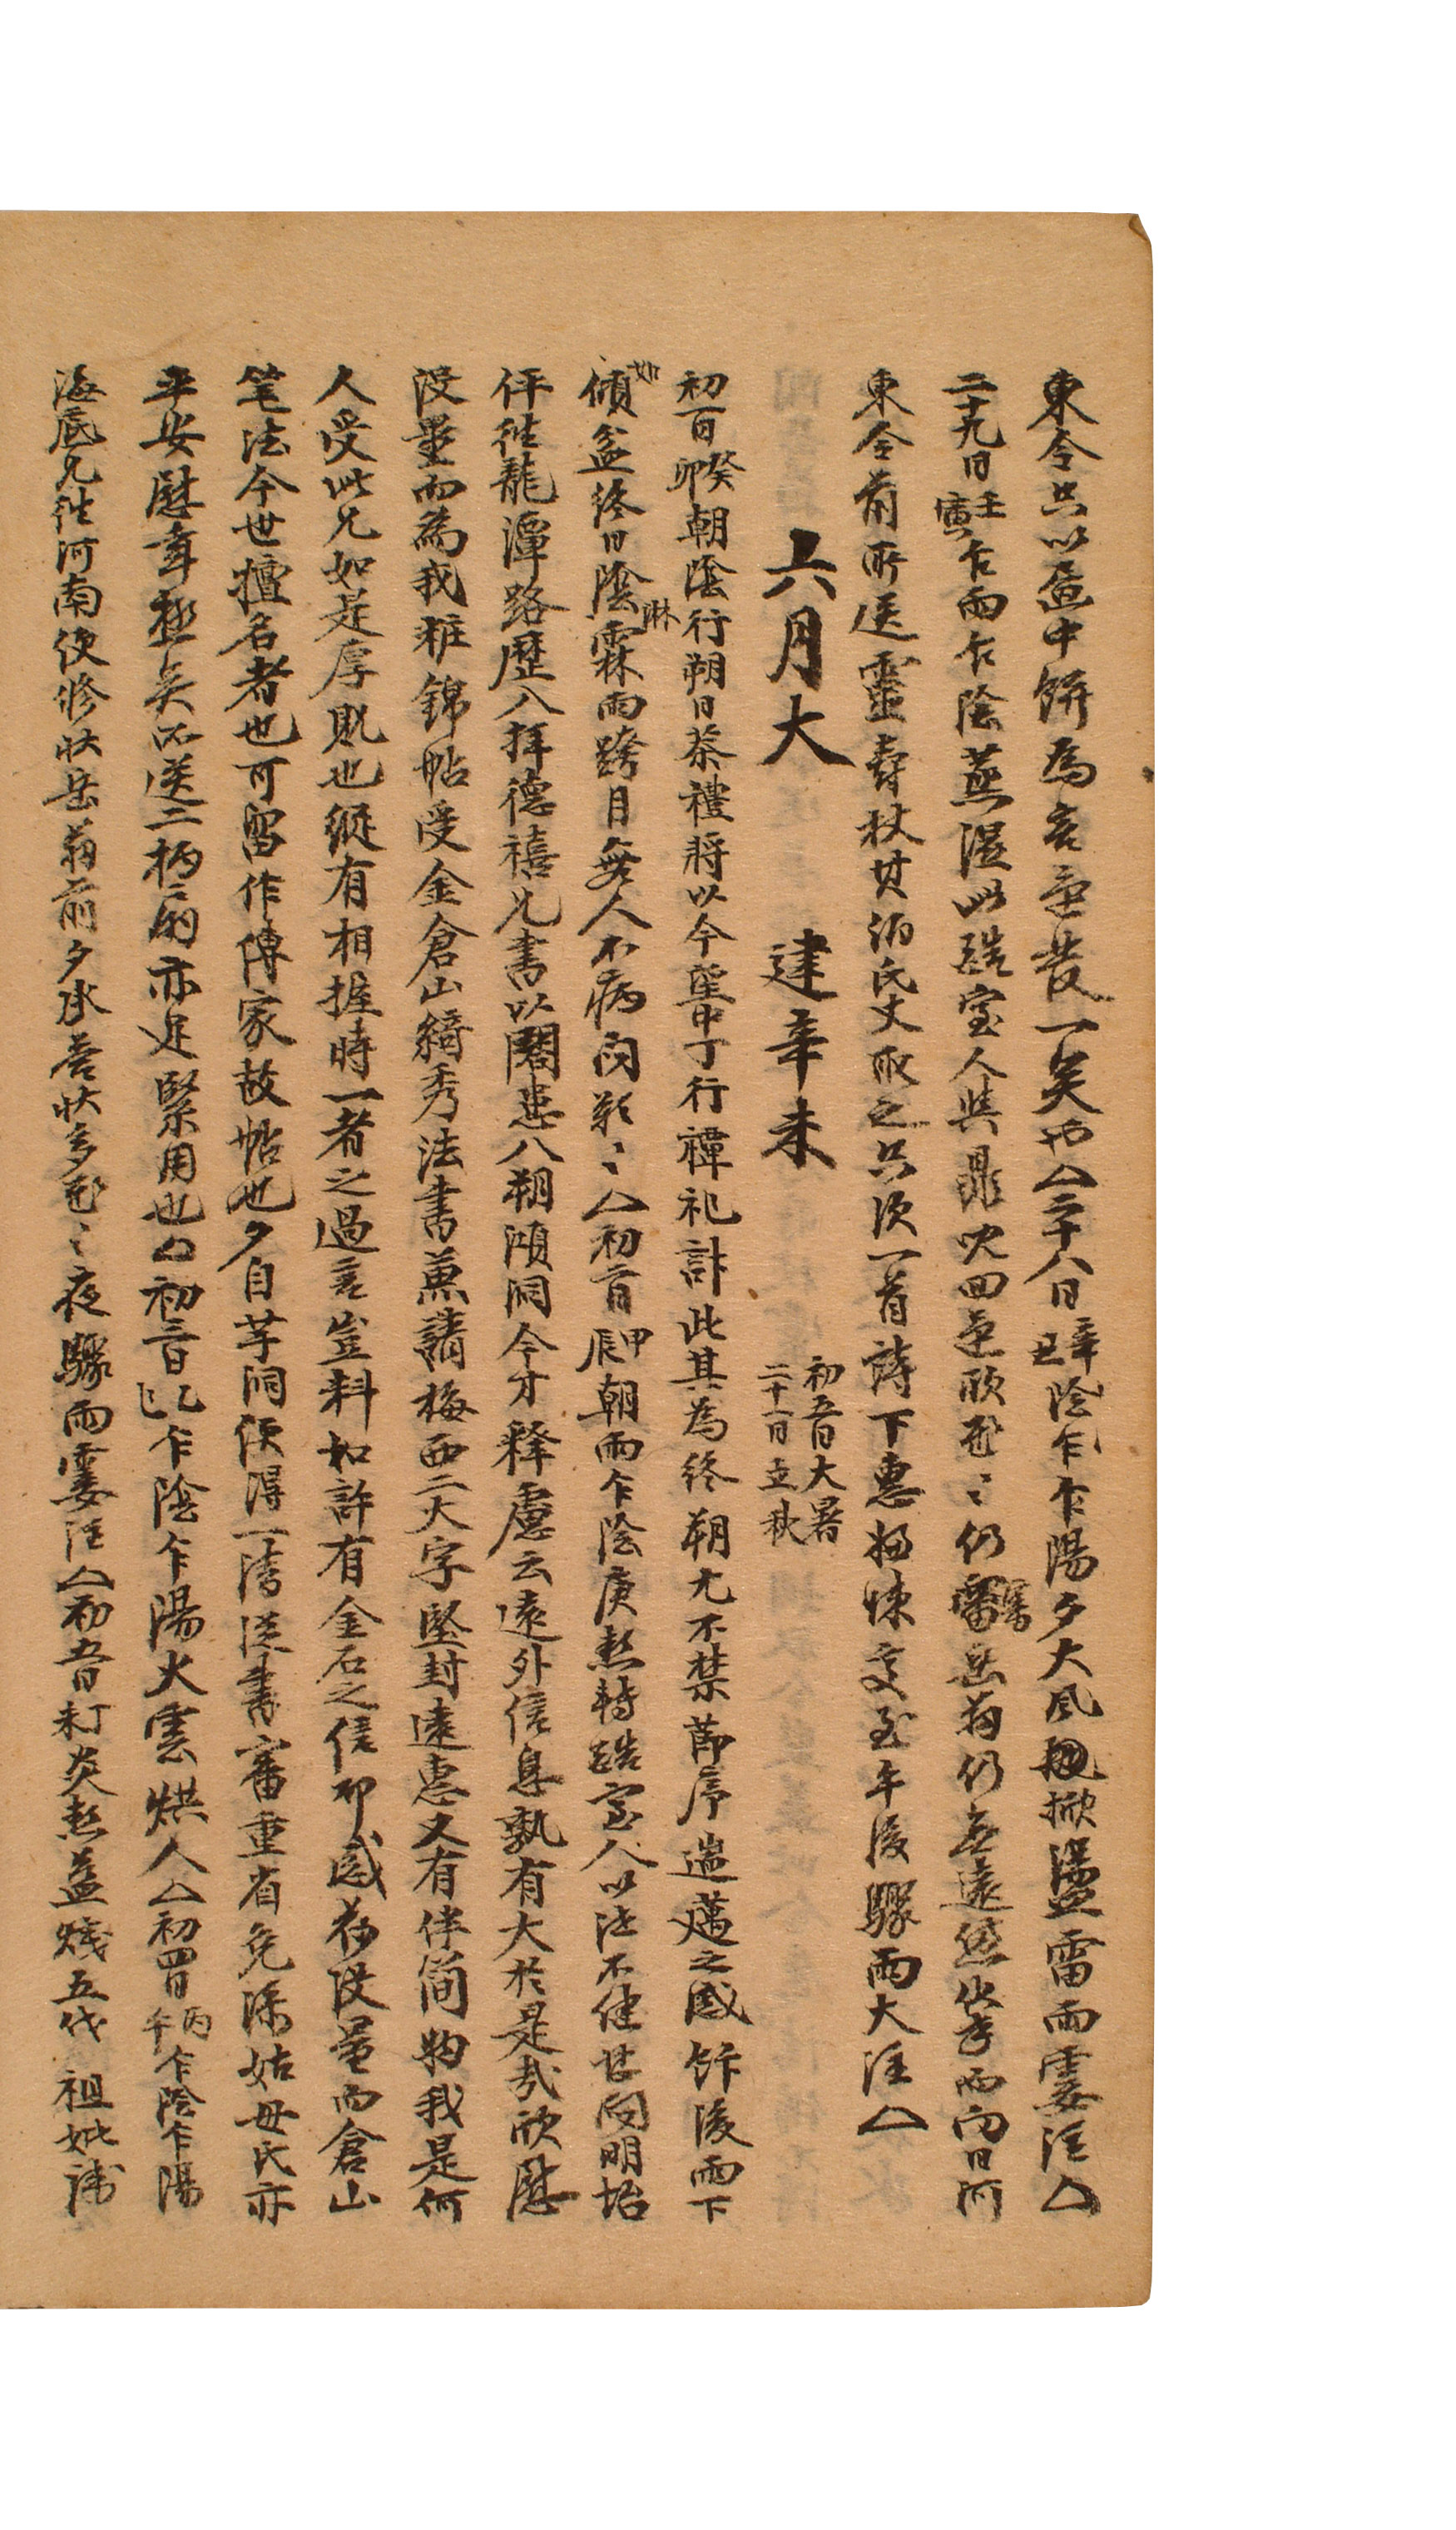 東令只以画中餠為言還發一笑也△二十八日辛丑陰乍乍陽夕大風飜掀盪雷雨霎注△
二十九日壬寅乍雨乍陰蒸濕此皓室人與鼎吠回還欣慰〻仍審岳翁仍無遠愆出聖而向日河
東令前所送靈壽杖其泊氏丈取之只次一首詩下惠婦悚交至午後驟雨大注△
六月大 建辛未 初五日大暑 二十一日立秋
初一日癸卯朝陰行朔日茶禮將以今望中丁行禫祀計此其為終朔尤不禁節序遄邁之感餠後雨下
如傾盆終日陰霖淋雨跨月每人不病悶歎〻△初二日甲辰朝雨乍陰庚熱轉皓室人以注不健甘向明坮
伻往龍潭路歷八拜德禧兄書以閤患八朔澒洞今才釋慮云遠外信息孰有大於是哉欣慰
沒量而為我粧錦帖受金倉山綺秀法書兼請梅西二大字堅封遠惠又有伴簡物我是何
人受此兄如是厚貺也縱有相握時一者之過言豈料如許有金石之信耶感荷沒量而倉山
笔法今世擅名者也可留作傳家故帖也夕自芋洞便得一淸從書審重省免添姑母氏亦
平安慰幸極矣所送二柄扇亦是緊用也△初三日乙巳乍陰乍陽火雲烘人△初四日丙午乍陰乍陽
海底兄往河南便修狀岳翁前夕承答狀多慰〻夜驟雨霎注△初五日丁未炎熱益熾五代祖妣諱